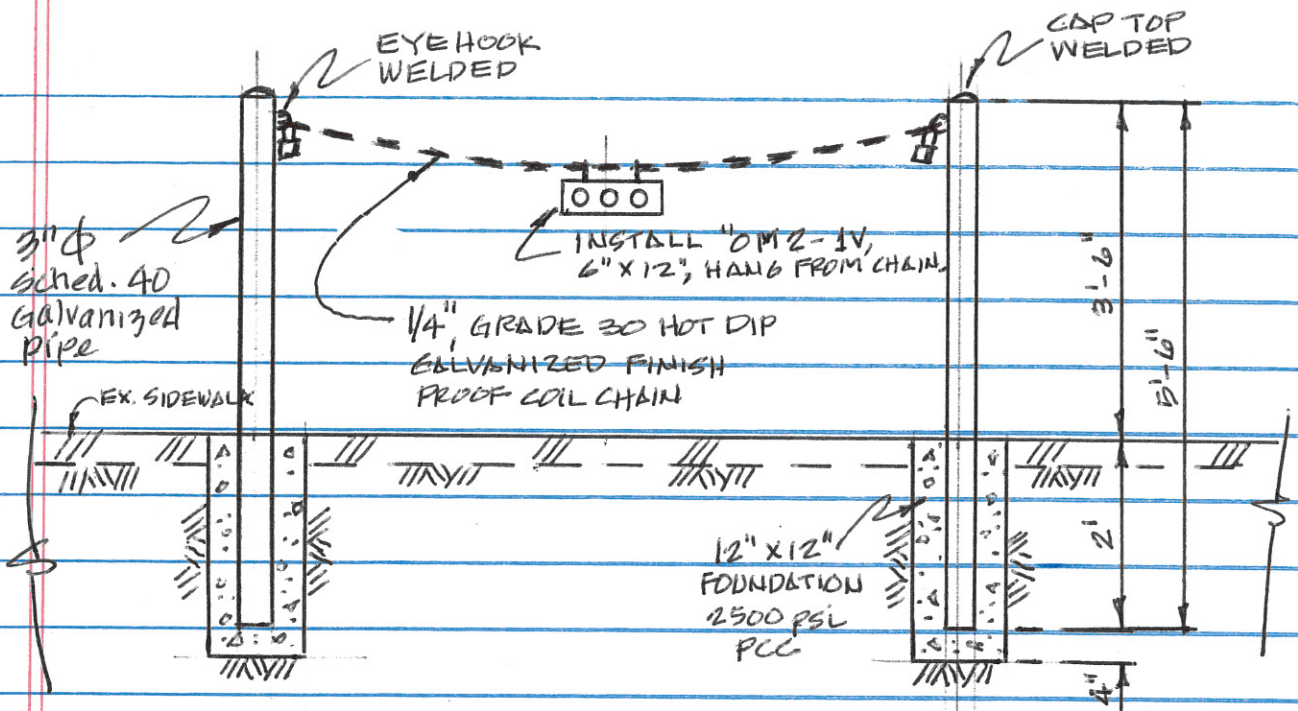 EYE HOOK
WELDED
CAP TOP
WELDED
3" ϕ
sched. 40
Galvanized
pipe
INSTALL "OM2-1V,
6" X 12", HANG FROM CHAIN.
1/4", GRADE 30 HOT DIP
GALVANIZED FINISH
PROOF COIL CHAIN
3'-6"
5'-6"
EX. SIDEWALK
2'
12" X 12"
FOUNDATION
2500 PSI
PCC
4"